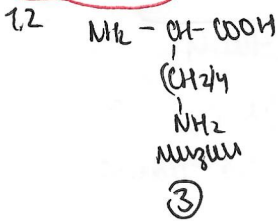 1,2 NH2 – CH – COOH
(CH2)4
NH2
лизин
3